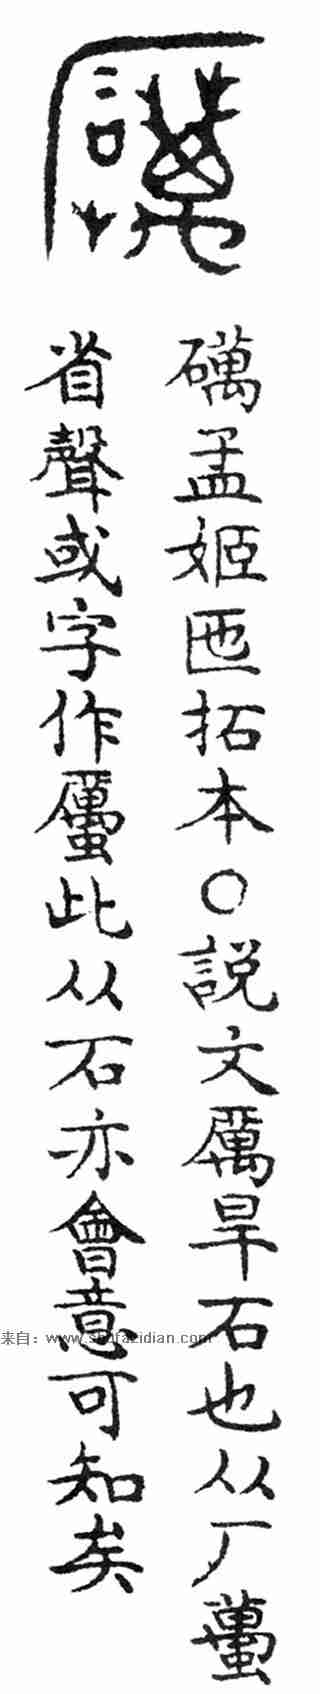 礪孟姬匜拓本○說文厲旱石也从厂蠆
省聲或字作𠪾此从石亦會意可知矣
来自：www.shufazidian.com